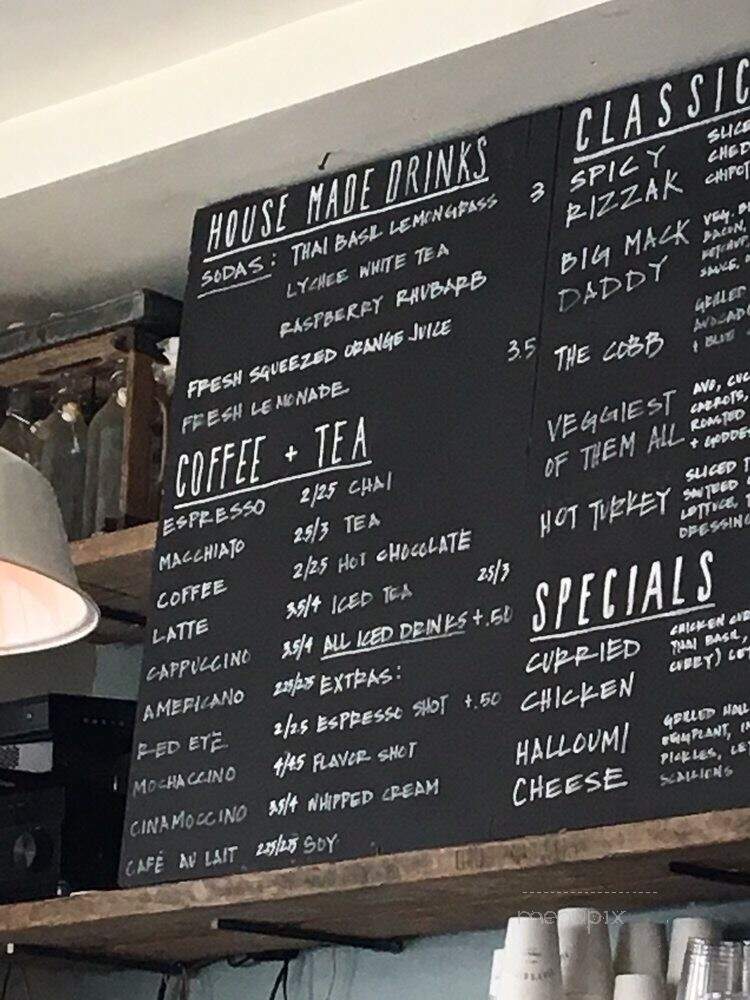 HOUSE MADE DRINKS
SODAS: THAI BASIL LEMONGRASS 3
LYCHEE WHITE TEA
RASPBERRY RHUBARB
FRESH SQUEEZED ORANGE JUICE 3.5
FRESH LEMONADE
COFFEE + TEA
ESPRESSO 2/25 CHAI
MACCHIATO 25/3 TEA
COFFEE 2/25 HOT CHOCOLATE
LATTE 35/4 ICED TEA 25/3
CAPPUCCINO 35/4 ALL ICED DRINKS +.50
AMERICANO EXTRAS:
RED EYE 2/2.5 ESPRESSO SHOT +.50
MOCHACCINO 4/45 FLAVOR SHOT
CINAMOCCINO 35/4 WHIPPED CREAM
CAFÉ AU LAIT SOY
CLASSIC
SPICY
RIZZAK
SLICE
CHED
CHIPOT
BIG MACK
DADDY
VEG. B
BACON,
KETCHUP
SAUCE,
THE COBB
GRILLED
AVOCADO
+ BLUE
VEGGIEST
OF THEM ALL
AVO, CUC
CARROTS,
ROASTED
+ GODDES
HOT TURKEY
SLICED T
SAUTEED
LETTUCE,
DRESSING
SPECIALS
CURRIED
CHICKEN
CHICKEN CUR
THAI BASIL,
CURRY) LET
HALLOUMI
CHEESE
GRILLED HALL
EGGPLANT,
PICKLES, LET
SCALLIONS
menupix